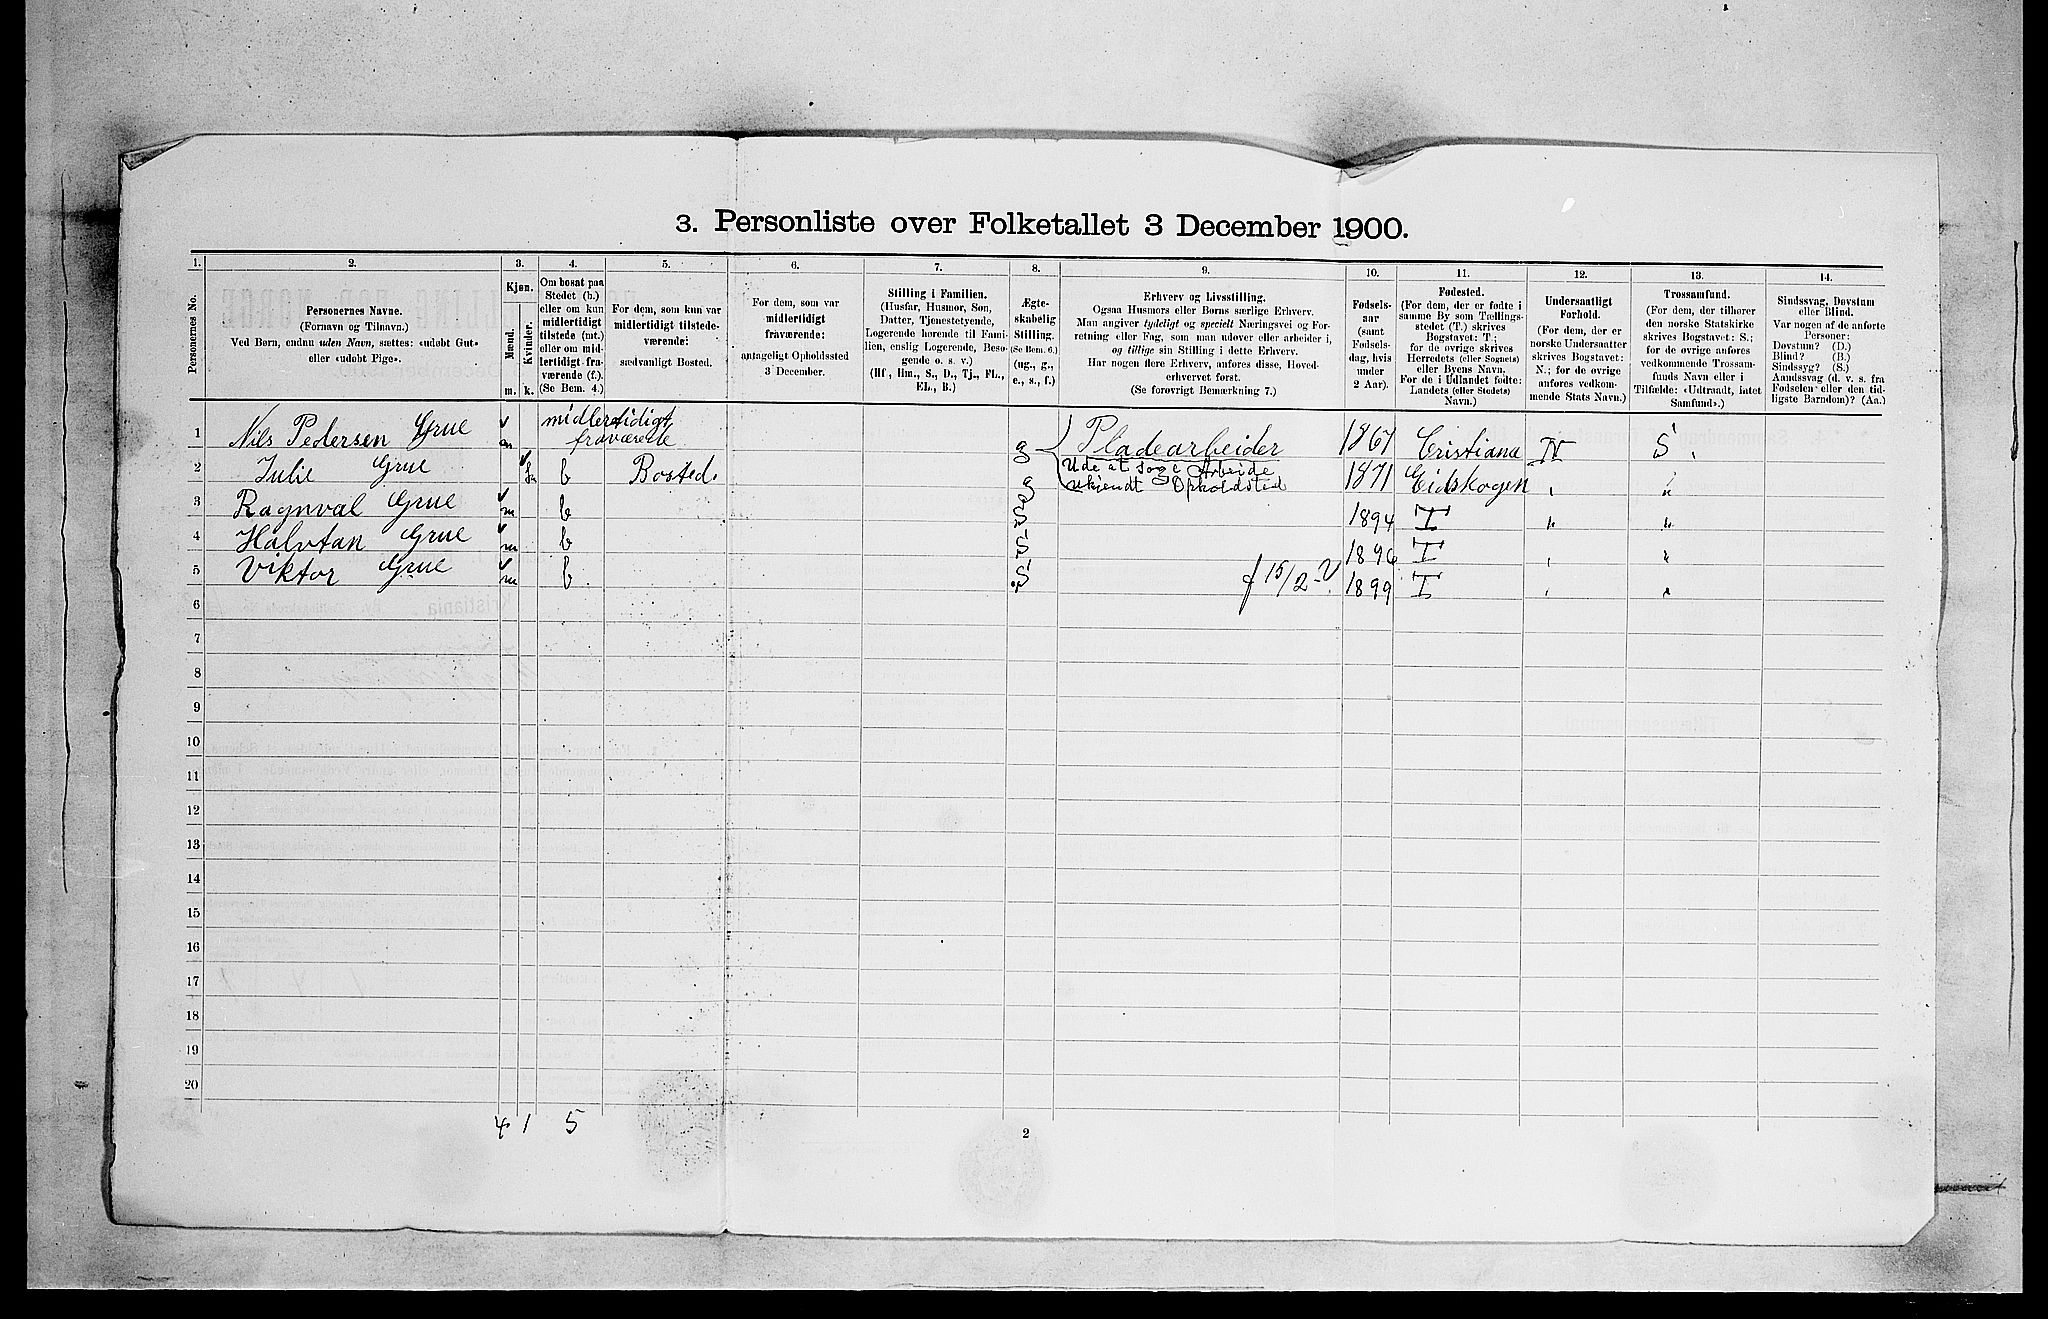 3. Personliste over Folketallet 3 December 1900.
1. 2. 3. 4. 5. 6. 7. 8. 9. 10. 11. 12. 13. 14.
Personernes No.
Personernes Navne.
(Fornavn og Tilnavn.)
Ved Børn, endnu uden Navn, sættes: «udøbt Gut»
eller «udøbt Pige».
Kjøn.
Mænd.
Kvinder.
m. k.
Om bosat paa
Stedet (b.)
eller om kun
midlertidigt
tilstede (mt.)
eller om mid-
lertidigt fra-
værende (f.)
(Se Bem. 4.)
For dem, som kun var
midlertidigt tilstede-
værende:
sædvanligt Bosted.
For dem, som var
midlertidigt
fraværende:
antageligt Opholdssted
3 December.
Stilling i Familien.
(Husfar, Husmor, Søn,
Datter, Tjenestetyende,
Logerende hørende til Fami-
lien, enslig Logerende, Besø-
gende o. s. v.)
(Hf., Hm., S., D., Tj., FL.,
EL., B.)
Ægte-
skabelig
Stilling.
(Se Bem. 6.)
(ug., g.,
e., s., f.)
Erhverv og Livsstilling.
Ogsaa Husmors eller Børns særlige Erhverv.
Man angiver tydeligt og specielt Næringsvei og For-
retning eller Fag, som man udøver eller arbeider i,
og tillige sin Stilling i dette Erhverv.
Har nogen flere Erhverv, anføres disse, Hoved-
erhvervet først.
(Se forøvrigt Bemærkning 7.)
Fødsels-
aar
(samt
Fødsels-
dag, hvis
under
2 Aar).
Fødested.
(For dem, der er fødte i
samme By som Tællings-
stedet (T.) skrives
Bogstavet: T;
for de øvrige skrives
Herredets (eller Sognets)
eller Byens Navn.
For de i Udlandet fødte:
Landets (eller Stedets)
Navn.)
Undersaatligt
Forhold.
(For dem, der er
norske Undersaatter
skrives Bogstavet:
N.; for de øvrige
anføres vedkom-
mende Stats Navn.)
Trossamfund.
(For dem, der tilhører
den norske Statskirke
skrives Bogstavet: S.;
for de øvrige anføres
vedkommende Trossam-
funds Navn eller i
Tilfælde: «Udtraadt, intet
Samfund».)
Sindssvag, Døvstum
eller Blind.
Var nogen af de anførte
Personer:
Døvstum? (D.)
Blind? (B.)
Sindssyg? (S.)
Aandssvag (d. v. s. fra
Fødselen eller den tid-
ligste Barndom)? (Aa.)
1 Nils Pedersen Grue m midlertidigt fraværende g Pladearbeider 1867 Cristiana N S.
2 Julie Grue b Bosted. g Ude at søge Arbeide 1871 Eidskogen " "
ukjendt Opholdsted
3 Ragnval Grue m b S 1894 T " "
4 Halvtan Grue m b S 1896 T " "
5 Viktor Grue m b S f 15/2 1899 T " "
6
7
8
9
10
11
12
13
14
15
16
17
18
19
20
4 1 5
2